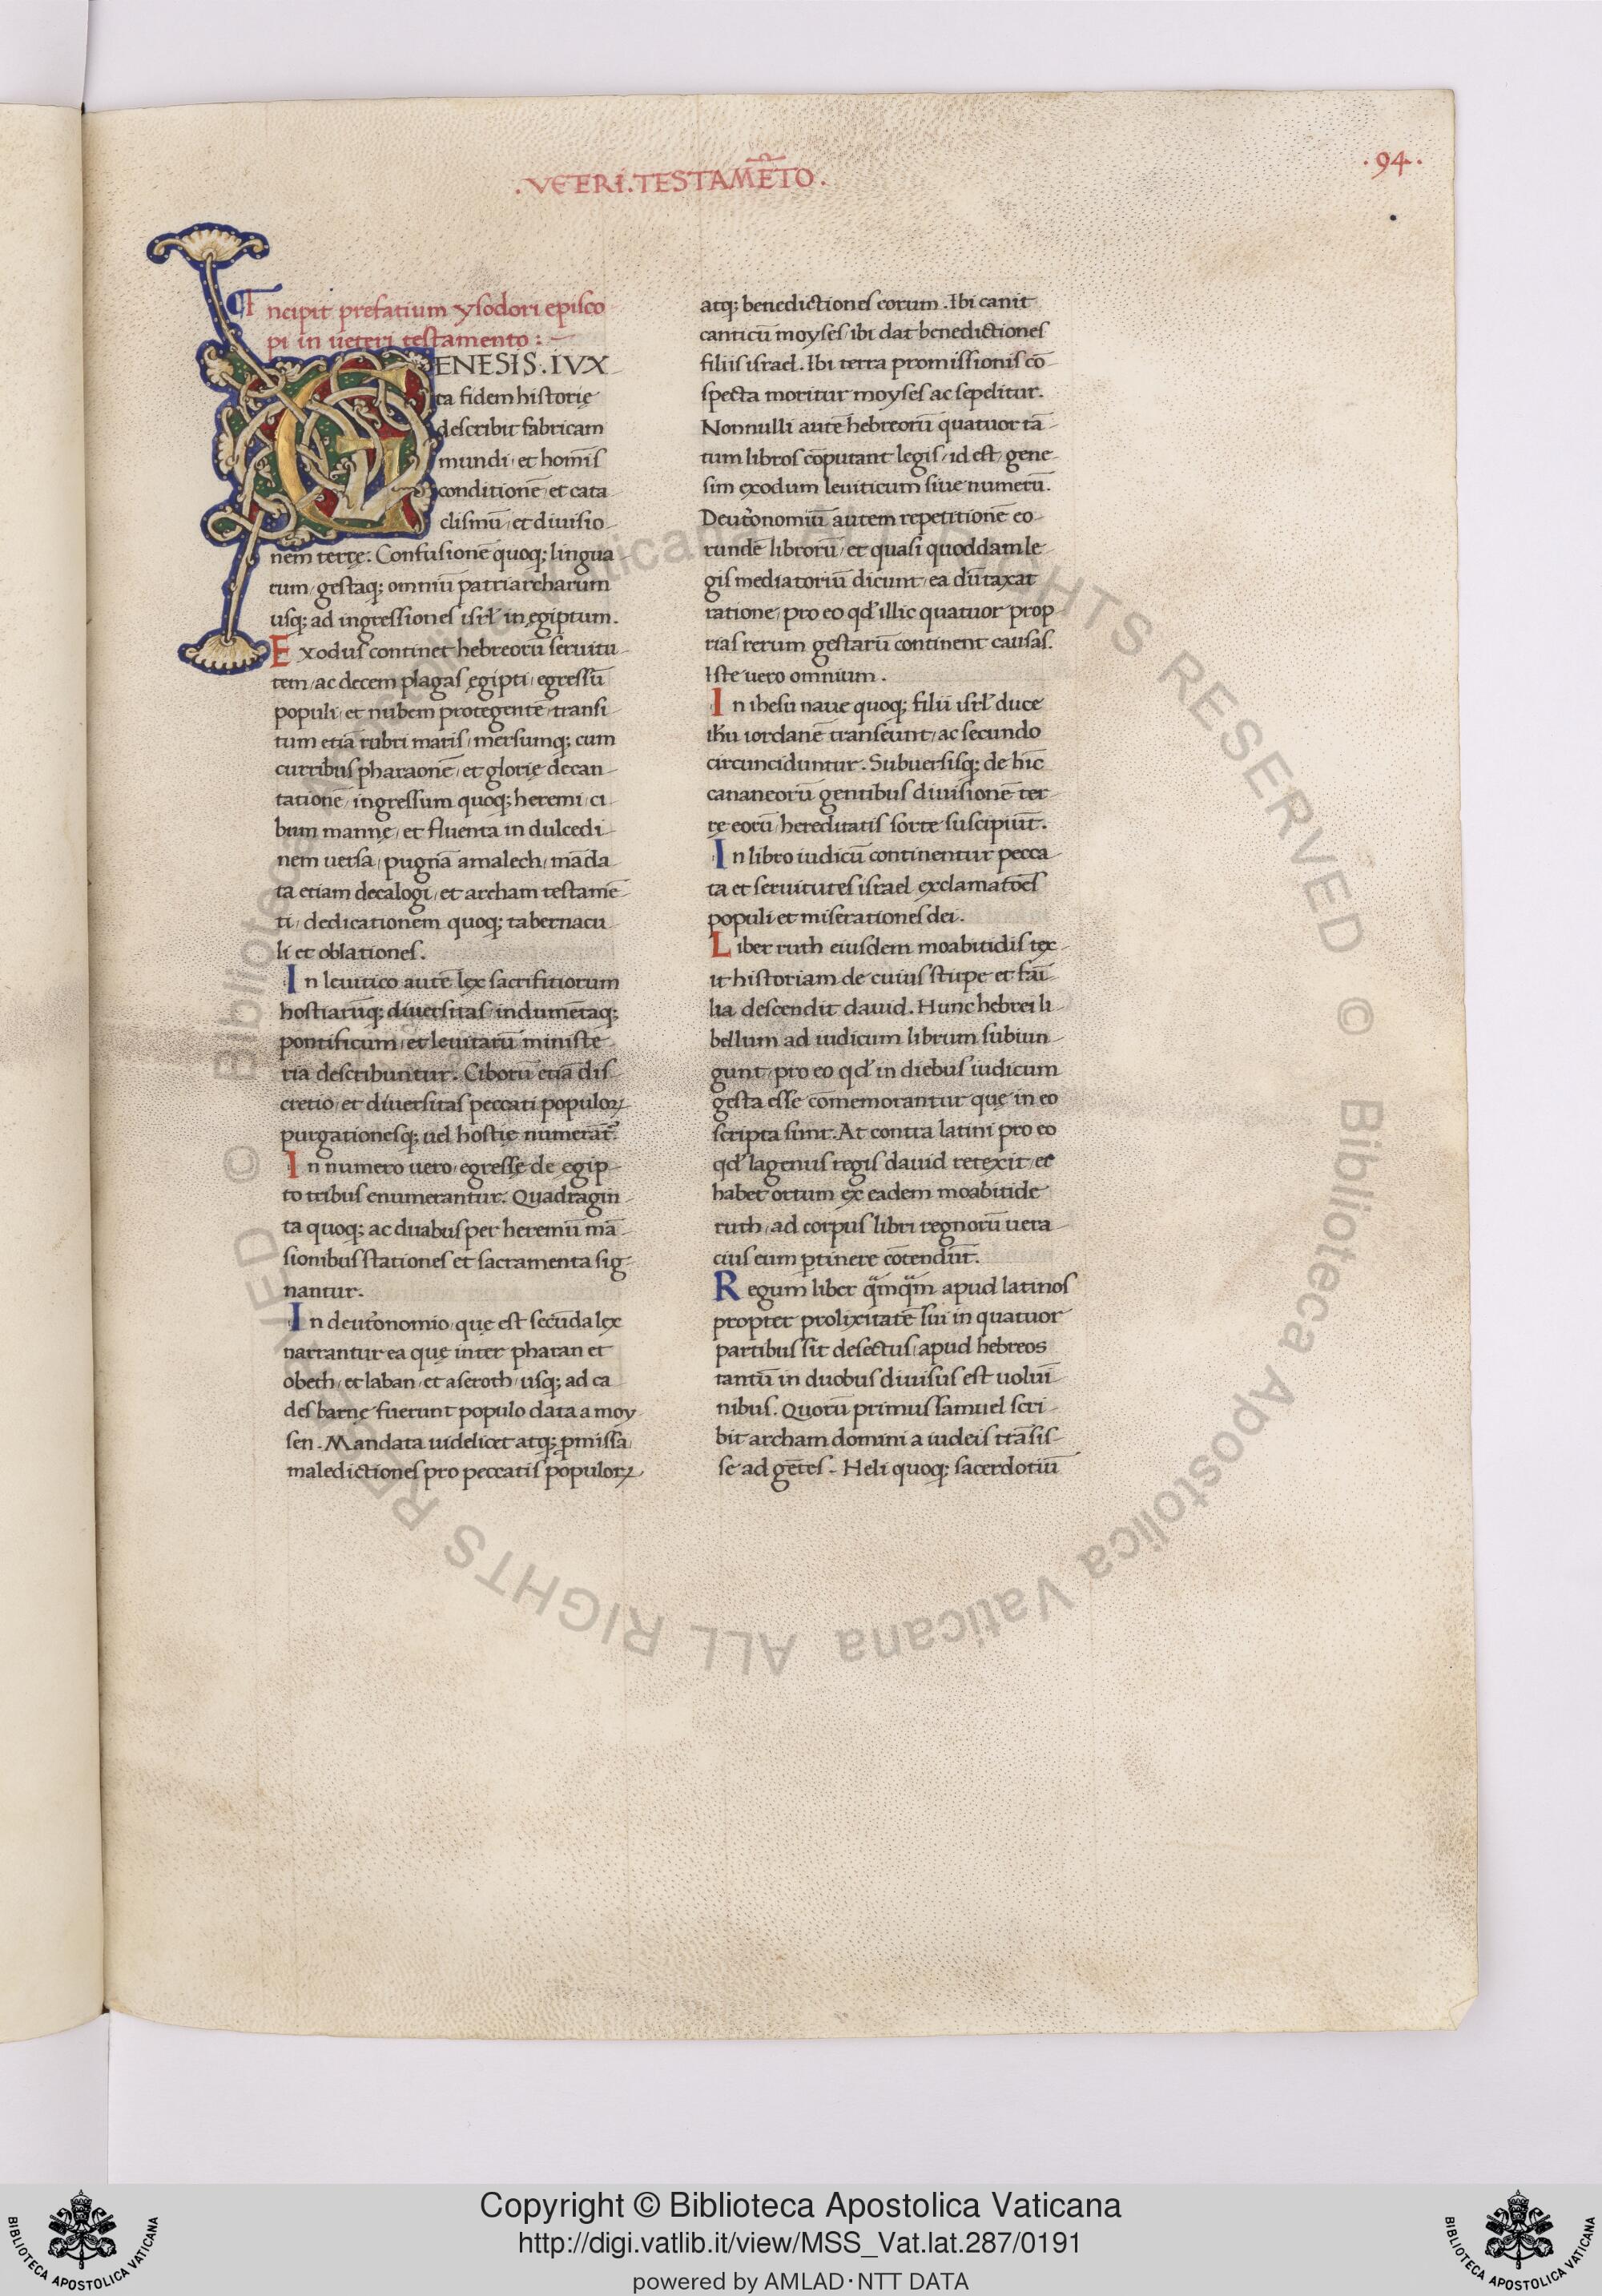 .VETERI.TESTAMĒTO.
.94.
Incipit prefatium ysodori episco
pi in ueteri testamento :
GENESIS.IVX
ta fidem historię
describit fabricam
mundi et homīs
conditionē et cata
clismū et diuisio
nem terrę. Confusionē quoq; lingua
rum gestaq; omniū patriarcharum
usq; ad ingressiones isrł in ęgiptum.
Exodus continet hebreorū seruitu
tem, ac decem plagas ęgipti, egressū
populi, et nubem protegentē, transi
tum etiā rubri maris, mersumq; cum
curribus pharaonē, et glorię decan
tationē, ingressum quoq; heremi, ci
bum mannę, et fluenta in dulcedi
nem uersa, pugnā amalech, māda
ta etiam decalogi, et archam testamē
ti, dedicationem quoq; tabernacu
li et oblationes.
In leuitico autē lex sacrifitiorum
hostiarūq; diuersitas, indumētaq;
pontificum, et leuitarū ministe
ria describuntur. Ciborū etiā dis
cretio, et diuersitas peccati populoꝝ
purgationesq; uel hostię numerāt᷑.
In numero uero, egressę de egip
to tribus enumerantur. Quadragin
ta quoq; ac duabus per heremū mā
sionibus stationes et sacramenta sig
nantur.
In deut̉onomio, quę est secūda lex
narrantur ea quę inter pharan et
obeth, et laban, et aseroth, usq; ad ca
des barnę fuerunt populo data a moy
sen. Mandata uidelicet atq; p̄missa
maledictiones pro peccatis populoꝝ
atq; benedictiones eorum. Ibi canit
canticū moyses ibi dat benedictiones
filiis israel. Ibi terra promissionis cō
specta moritur moyses ac sepelitur.
Nonnulli autē hebreorū quatuor tā
tum libros cōputant legis, id est, gene
sim exodum leuiticum siue numerū.
Deut̉onomiū autem repetitionē eo
rundē librorū, et quasi quoddam le
gis mediatoriū dicunt, ea dūtaxat
ratione, pro eo qđ illic quatuor prop
rias rerum gestarū continent causas.
Iste uero omnium.
In ihesu naue quoq; filii isrł duce
ihū iordanē transeunt, ac secundo
circunciduntur. Subuersisq; de hīc
cananeorū gentibus diuisionē ter
rę eorū hereditatis sorte suscipiūt.
In libro iudicū continentur pecca
ta et seruitutes israel exclamatōes
populi et miserationes dei.
Liber ruth eiusdem moabitidis tex
it historiam de cuius stirpe et fāi
lia descendit dauid. Hunc hebrei li
bellum ad iudicum librum subiun
gunt, pro eo qđ in diebus iudicum
gesta esse comemorantur quę in eo
scripta sunt. At contra latini pro eo
qđ lagenus regis dauid retexit et
habet ortum ex eadem moabitide
ruth, ad corpus libri regnorū uera
cius eum ꝑtinere cōtendūt.
Regum liber q̄mq̄m apud latinos
propter prolixitatē sui in quatuor
partibus sit desectus, apud hebreos
tantū in duobus diuisus est uoluī
nibus. Quorū primus samuel scri
bit archam domini a iudeis trāsis
se ad gētes. Heli quoq; sacerdotiū
© Biblioteca Apostolica Vaticana ALL RIGHTS RESERVED © Biblioteca Apostolica Vaticana ALL RIGHTS RESERVED
Copyright © Biblioteca Apostolica Vaticana
http://digi.vatlib.it/view/MSS_Vat.lat.287/0191
powered by AMLAD·NTT DATA
BIBLIOTECA APOSTOLICA VATICANA
BIBLIOTECA APOSTOLICA VATICANA